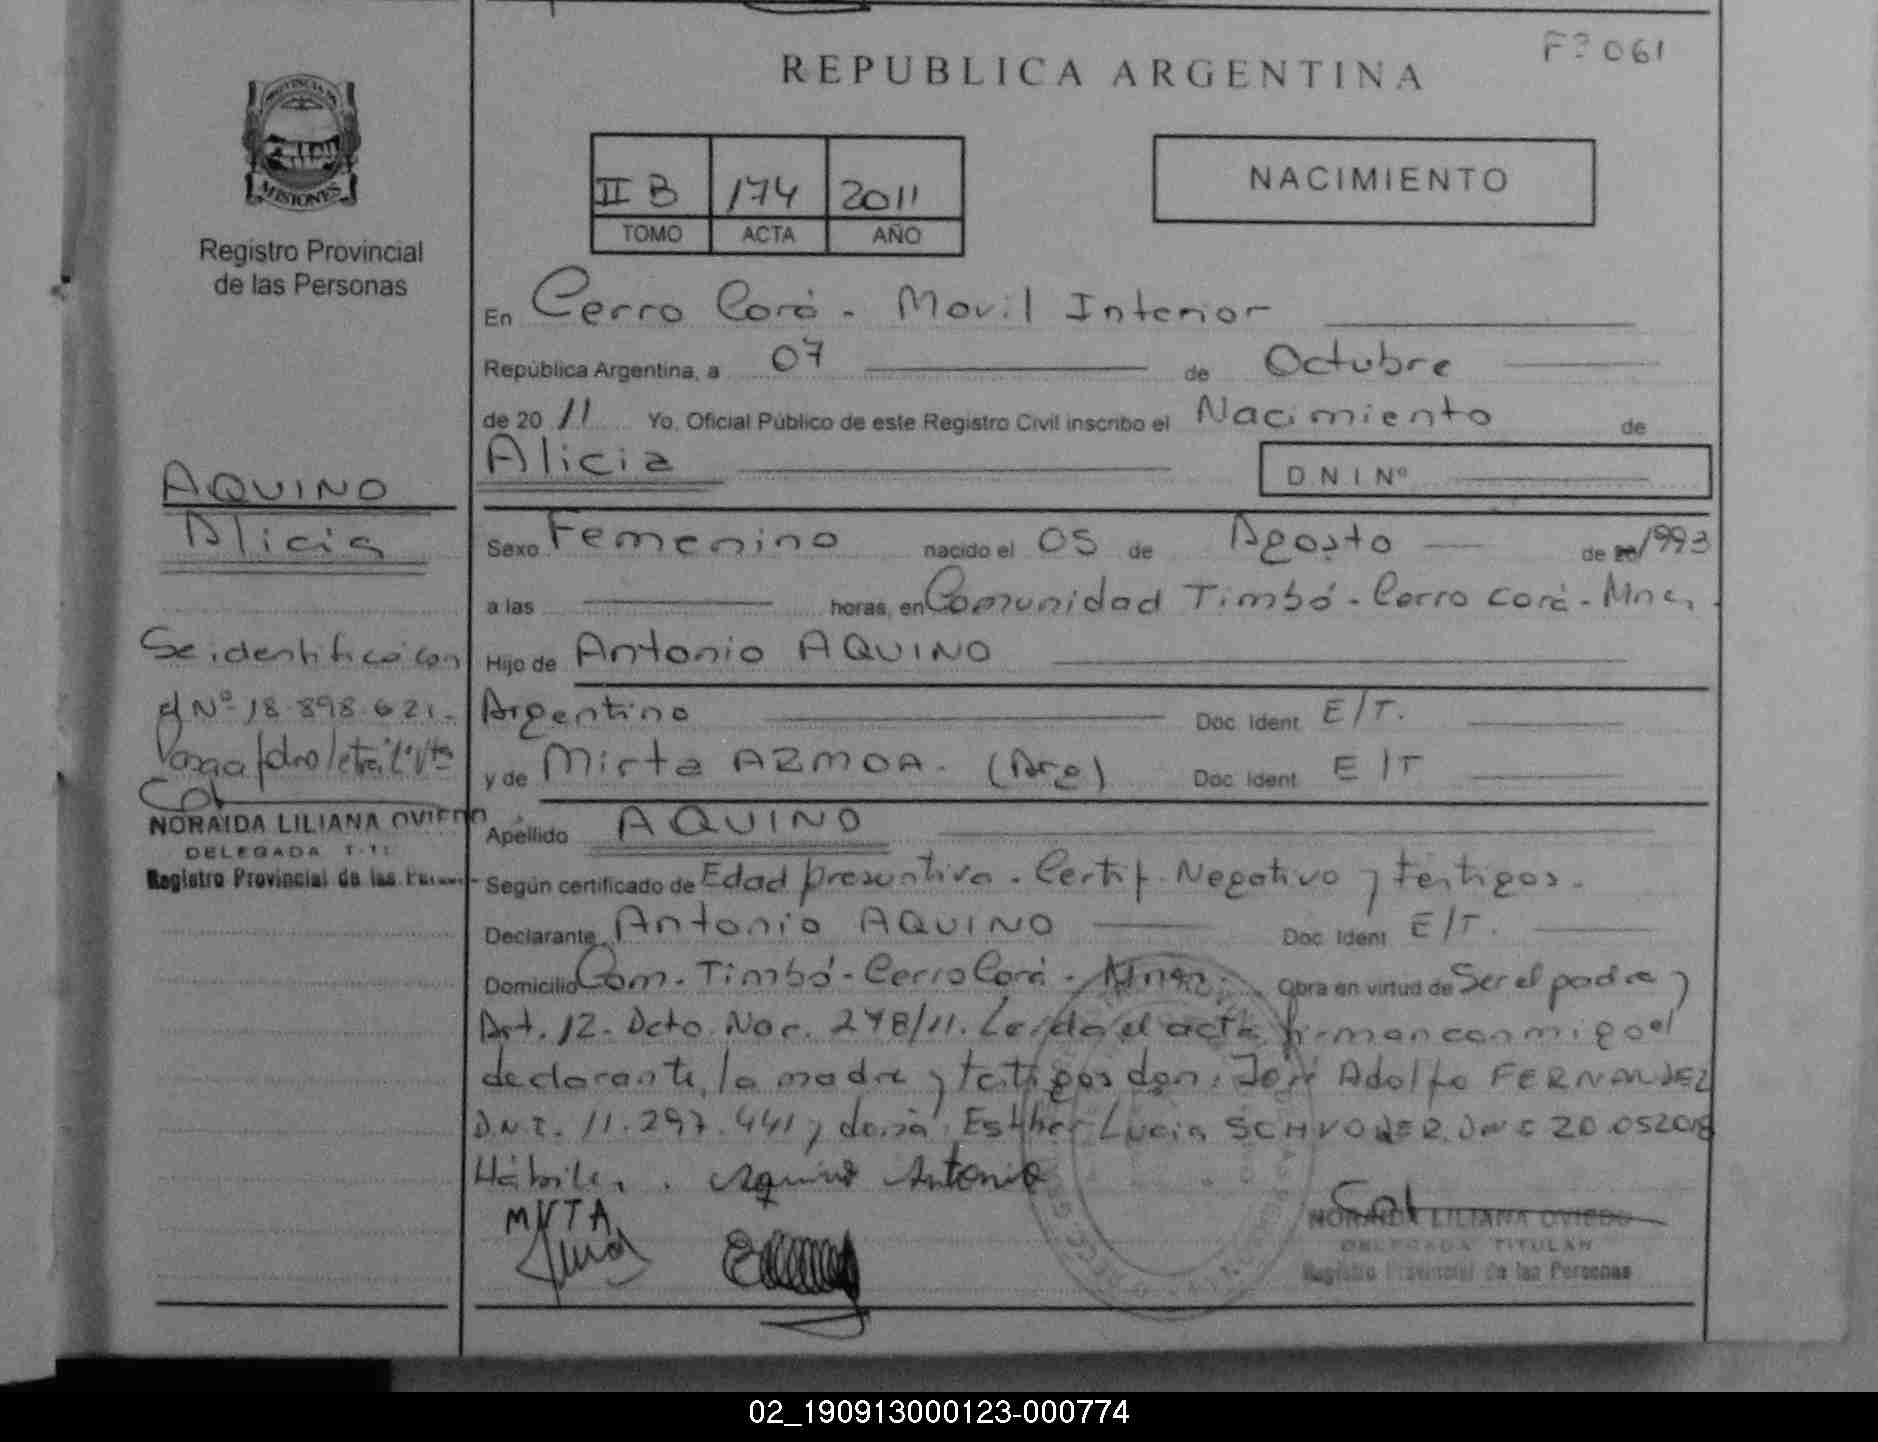 Fº 061
REPUBLICA ARGENTINA
PROVINCIA DE
MISIONES
Registro Provincial
de las Personas
II B 174 2011
TOMO ACTA AÑO
NACIMIENTO
En Cerro Corá - Movil Interior
República Argentina, a 07 de Octubre
de 20 11 Yo, Oficial Público de este Registro Civil inscribo el Nacimiento de
Alicia
D N I Nº
AQUINO
Alicia
Sexo Femenino nacido el 05 de Agosto de 1993
a las horas, en Comunidad Timbó - Cerro corá - Mnes.
Hijo de Antonio AQUINO
Argentino Doc Ident E/T.
y de Mirta AZMOA. (Arg) Doc Ident E/T
Apellido AQUINO
Según certificado de Edad presuntiva. Certif. Negativo y testigos.
Declarante Antonio AQUINO Doc Ident E/T.
Domicilio Com. Timbó - Cerro Corá - Mnes. Obra en virtud de Ser el padre y
Art. 12. Dcto. Nac. 278/11. Leída el acta firman conmigo el
declarante, la madre y testigos don: José Adolfo FERNANDEZ
D.N.I. 11.297.441 y doña Esther Lucia DNI 20.052018
Hábiles. Aquino Antonio
MIRTA
NORAIDA LILIANA OVIEDO
DELEGADA TITULAR
Registro Provincial de las Personas
Se identificó con
el Nº 18.898.621.
NORAIDA LILIANA OVIEDO
DELEGADA
Registro Provincial de las
02_190913000123-000774